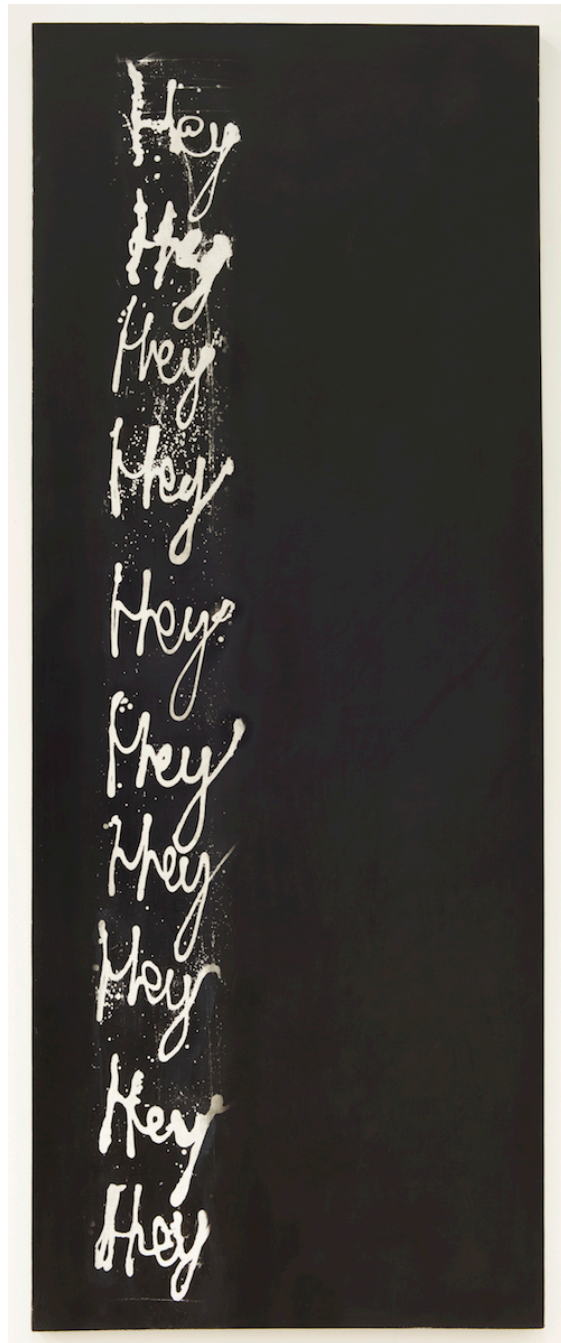 Hey
Hey
Hey
Hey
Hey
Hey
Hey
Hey
Hey
Hey